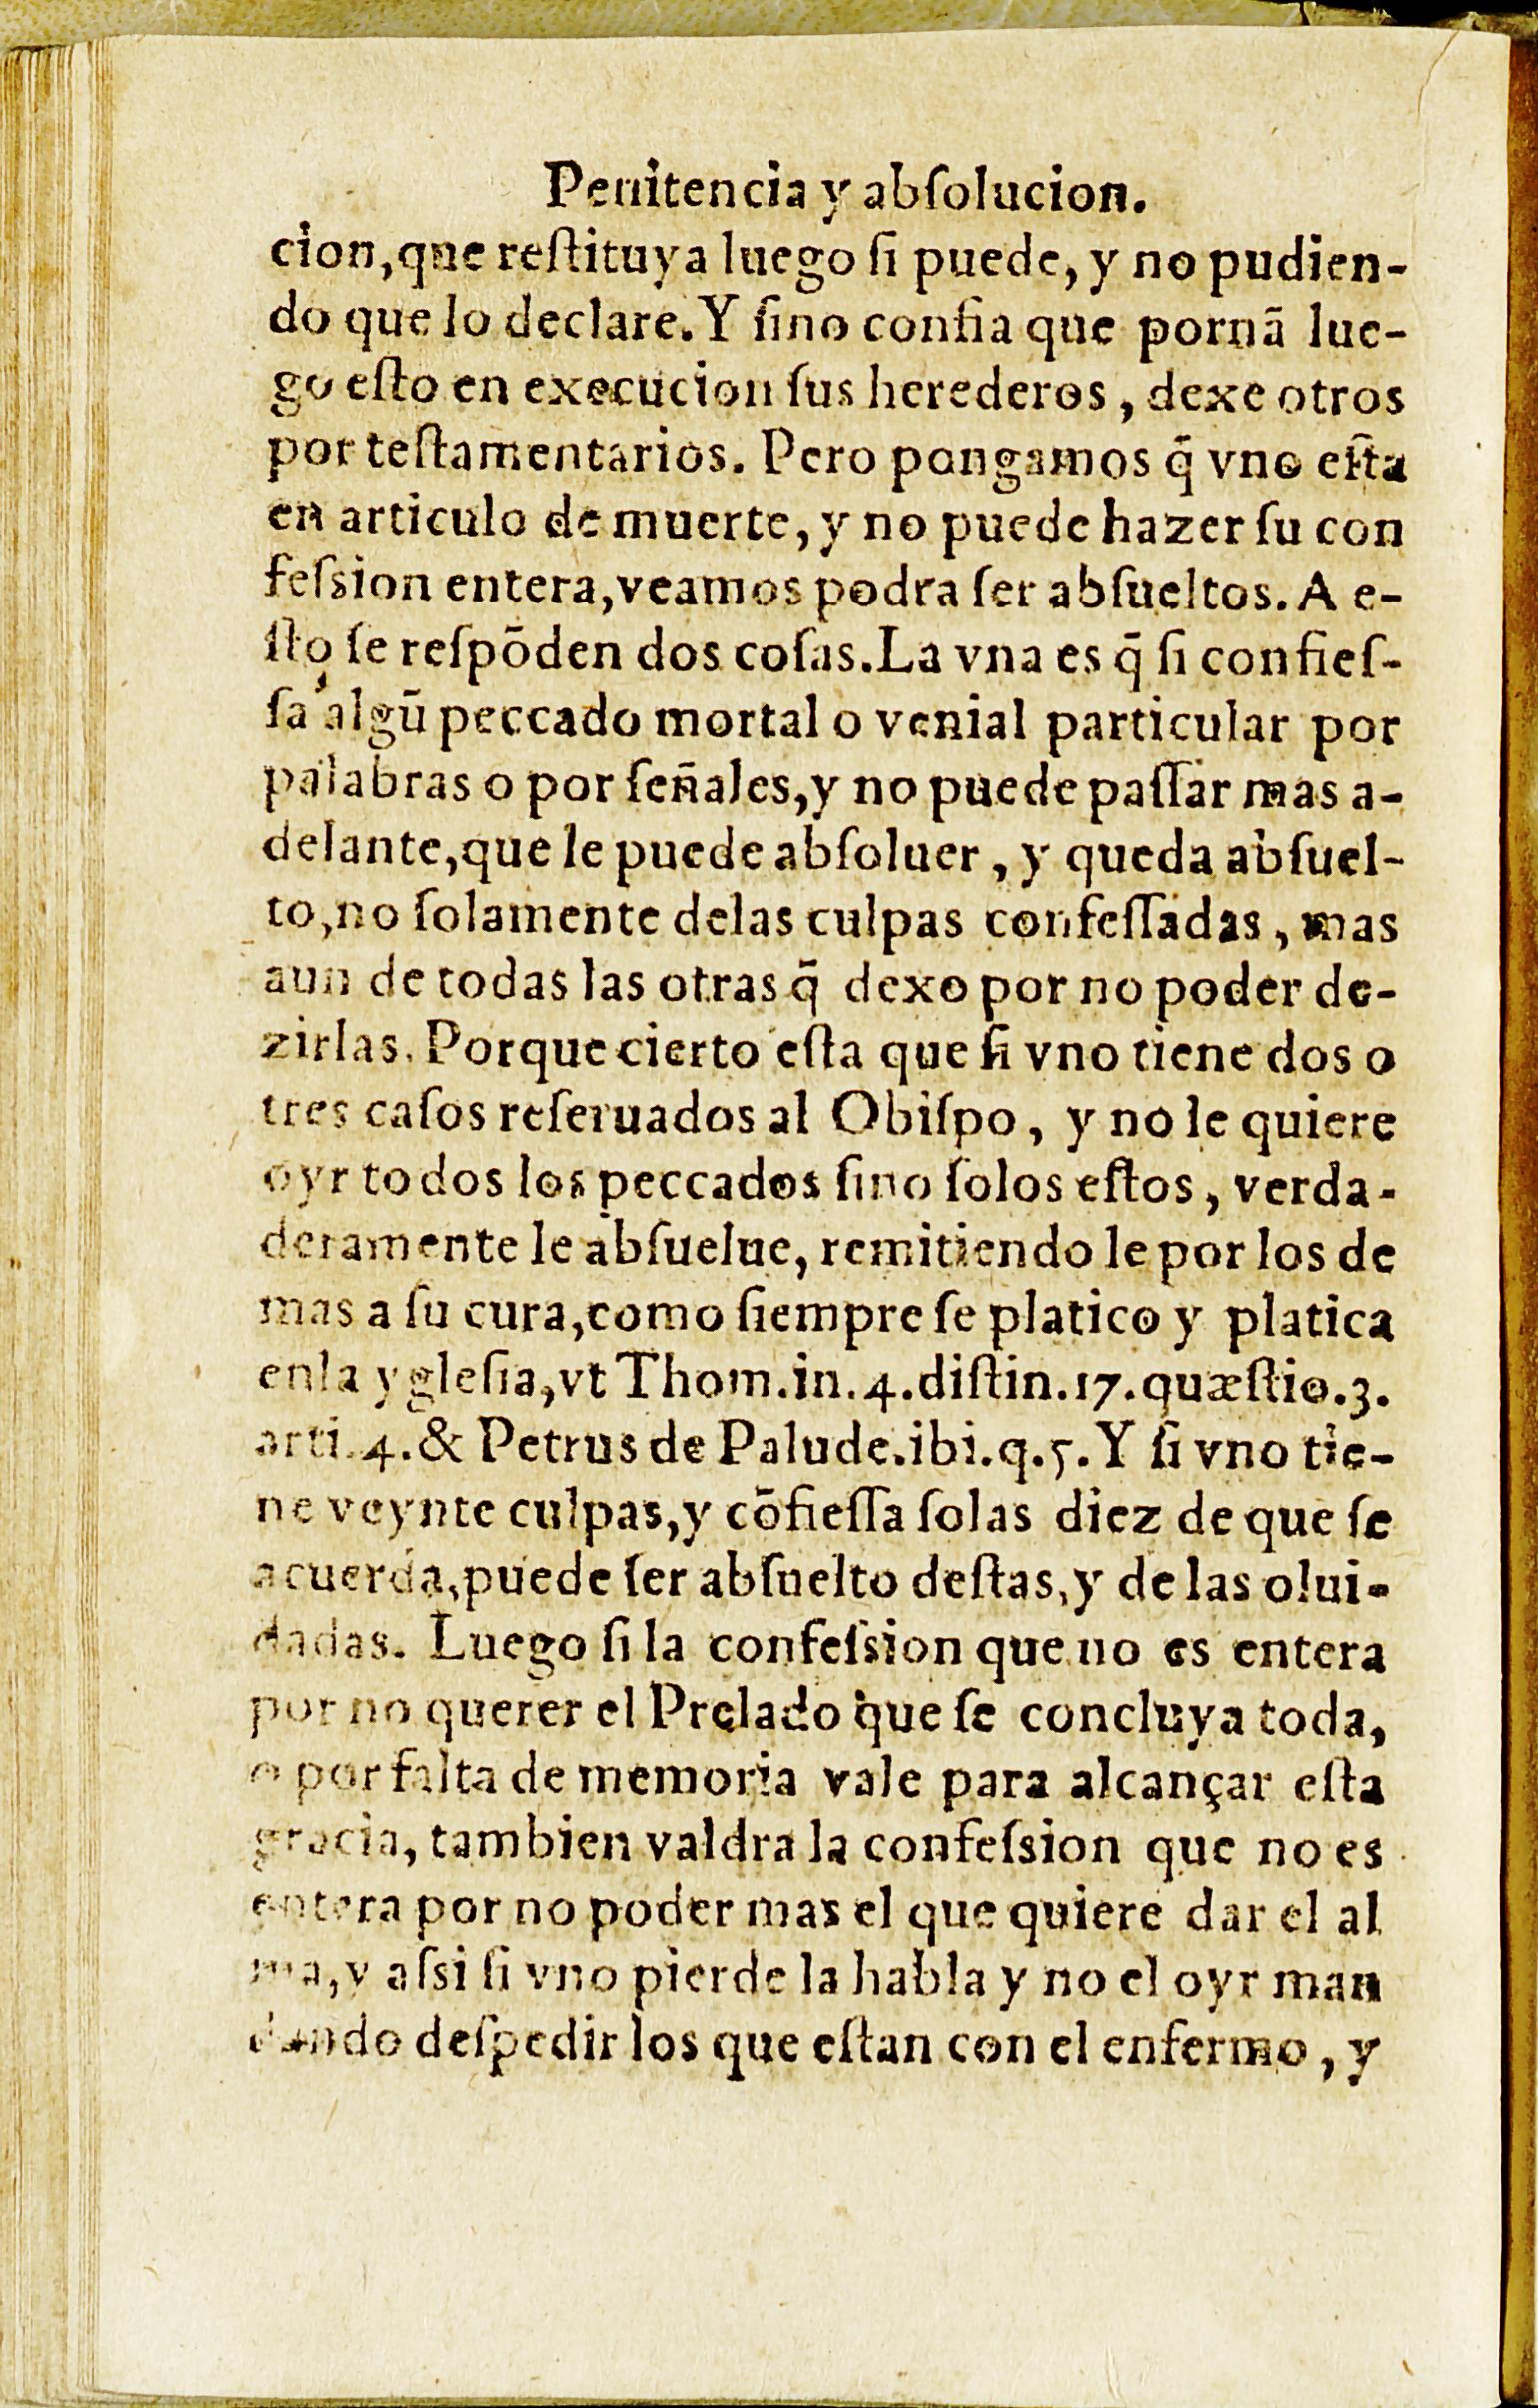 Penitencia y abſolucion.
cion,que reſtituya luego ſi puede, y no pudien-
do que lo declare. Y ſino confia que pornã lue-
go eſto en execucion ſus herederos, dexe otros
por teſtamentarios. Pero pongamos q̃ vno eſta
en articulo de muerte, y no puede hazer ſu con
feſsion entera,veamos podra ſer abſueltos. A e-
ſto ſe reſpõden dos coſas.La vna es q̃ ſi confieſ-
ſa algũ peccado mortal o venial particular por
palabras o por ſeñales,y no puede paſſar mas a-
delante,que le puede abſoluer, y queda abſuel-
to,no ſolamente delas culpas confeſſadas, mas
aun de todas las otras q̃ dexo por no poder de-
zirlas. Porque cierto eſta que ſi vno tiene dos o
tres caſos reſeruados al Obiſpo, y no le quiere
oyr todos los peccados ſino ſolos eſtos, verda-
deramente le abſuelue, remitiendo le por los de
mas a ſu cura,como ſiempre ſe platico y platica
enla ygleſia,vt Thom.in.4.diſtin.17.quæſtio.3.
arti.4.& Petrus de Palude.ibi.q.5. Y ſi vno tie-
ne veynte culpas,y cõfieſſa ſolas diez de que ſe
acuerda,puede ſer abſuelto deſtas,y de las olui-
dadas. Luego ſi la confeſsion que no es entera
por no querer el Prelado que ſe concluya toda,
o por falta de memoria vale para alcançar eſta
gracia, tambien valdra la confeſsion que no es
entera por no poder mas el que quiere dar el al
ma,y aſsi ſi vno pierde la habla y no el oyr man
dando deſpedir los que eſtan con el enfermo, y